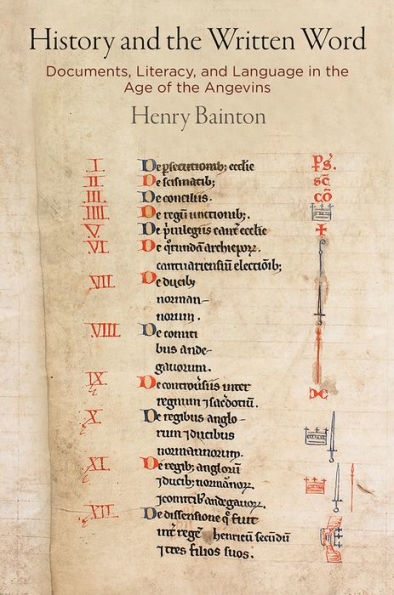 History and the Written Word
Documents, Literacy, and Language in the
Age of the Angevins
Henry Bainton
I. De ꝑsecutionibꝫ ecclie p̄s̄.
II. De scismatibꝫ sc̄
III. De conciliis. cō
IIII. De regū unctionibꝫ.
V. De pͥuilegiis cant̄ ecclie
VI. De archiepoꝝ.
cantuariensiū electiōibꝫ
VII. De ducibꝫ
norman-
norum.
VIII. De comiti
bus ande-
gauorum.
IX. De controu͛siis inter
regnum ⁊ sac͛dotiū.
X. De regibus anglo-
rum ⁊ ducibus
normannorum.
XI. De regibꝫ anglorū
⁊ ducibꝫ normānoꝝ.
⁊ comitibꝫ andegauoꝝ.
XII. De dissensione q̄ fuit
int͛ regē henricū secūdū
⁊ tres filios suos.